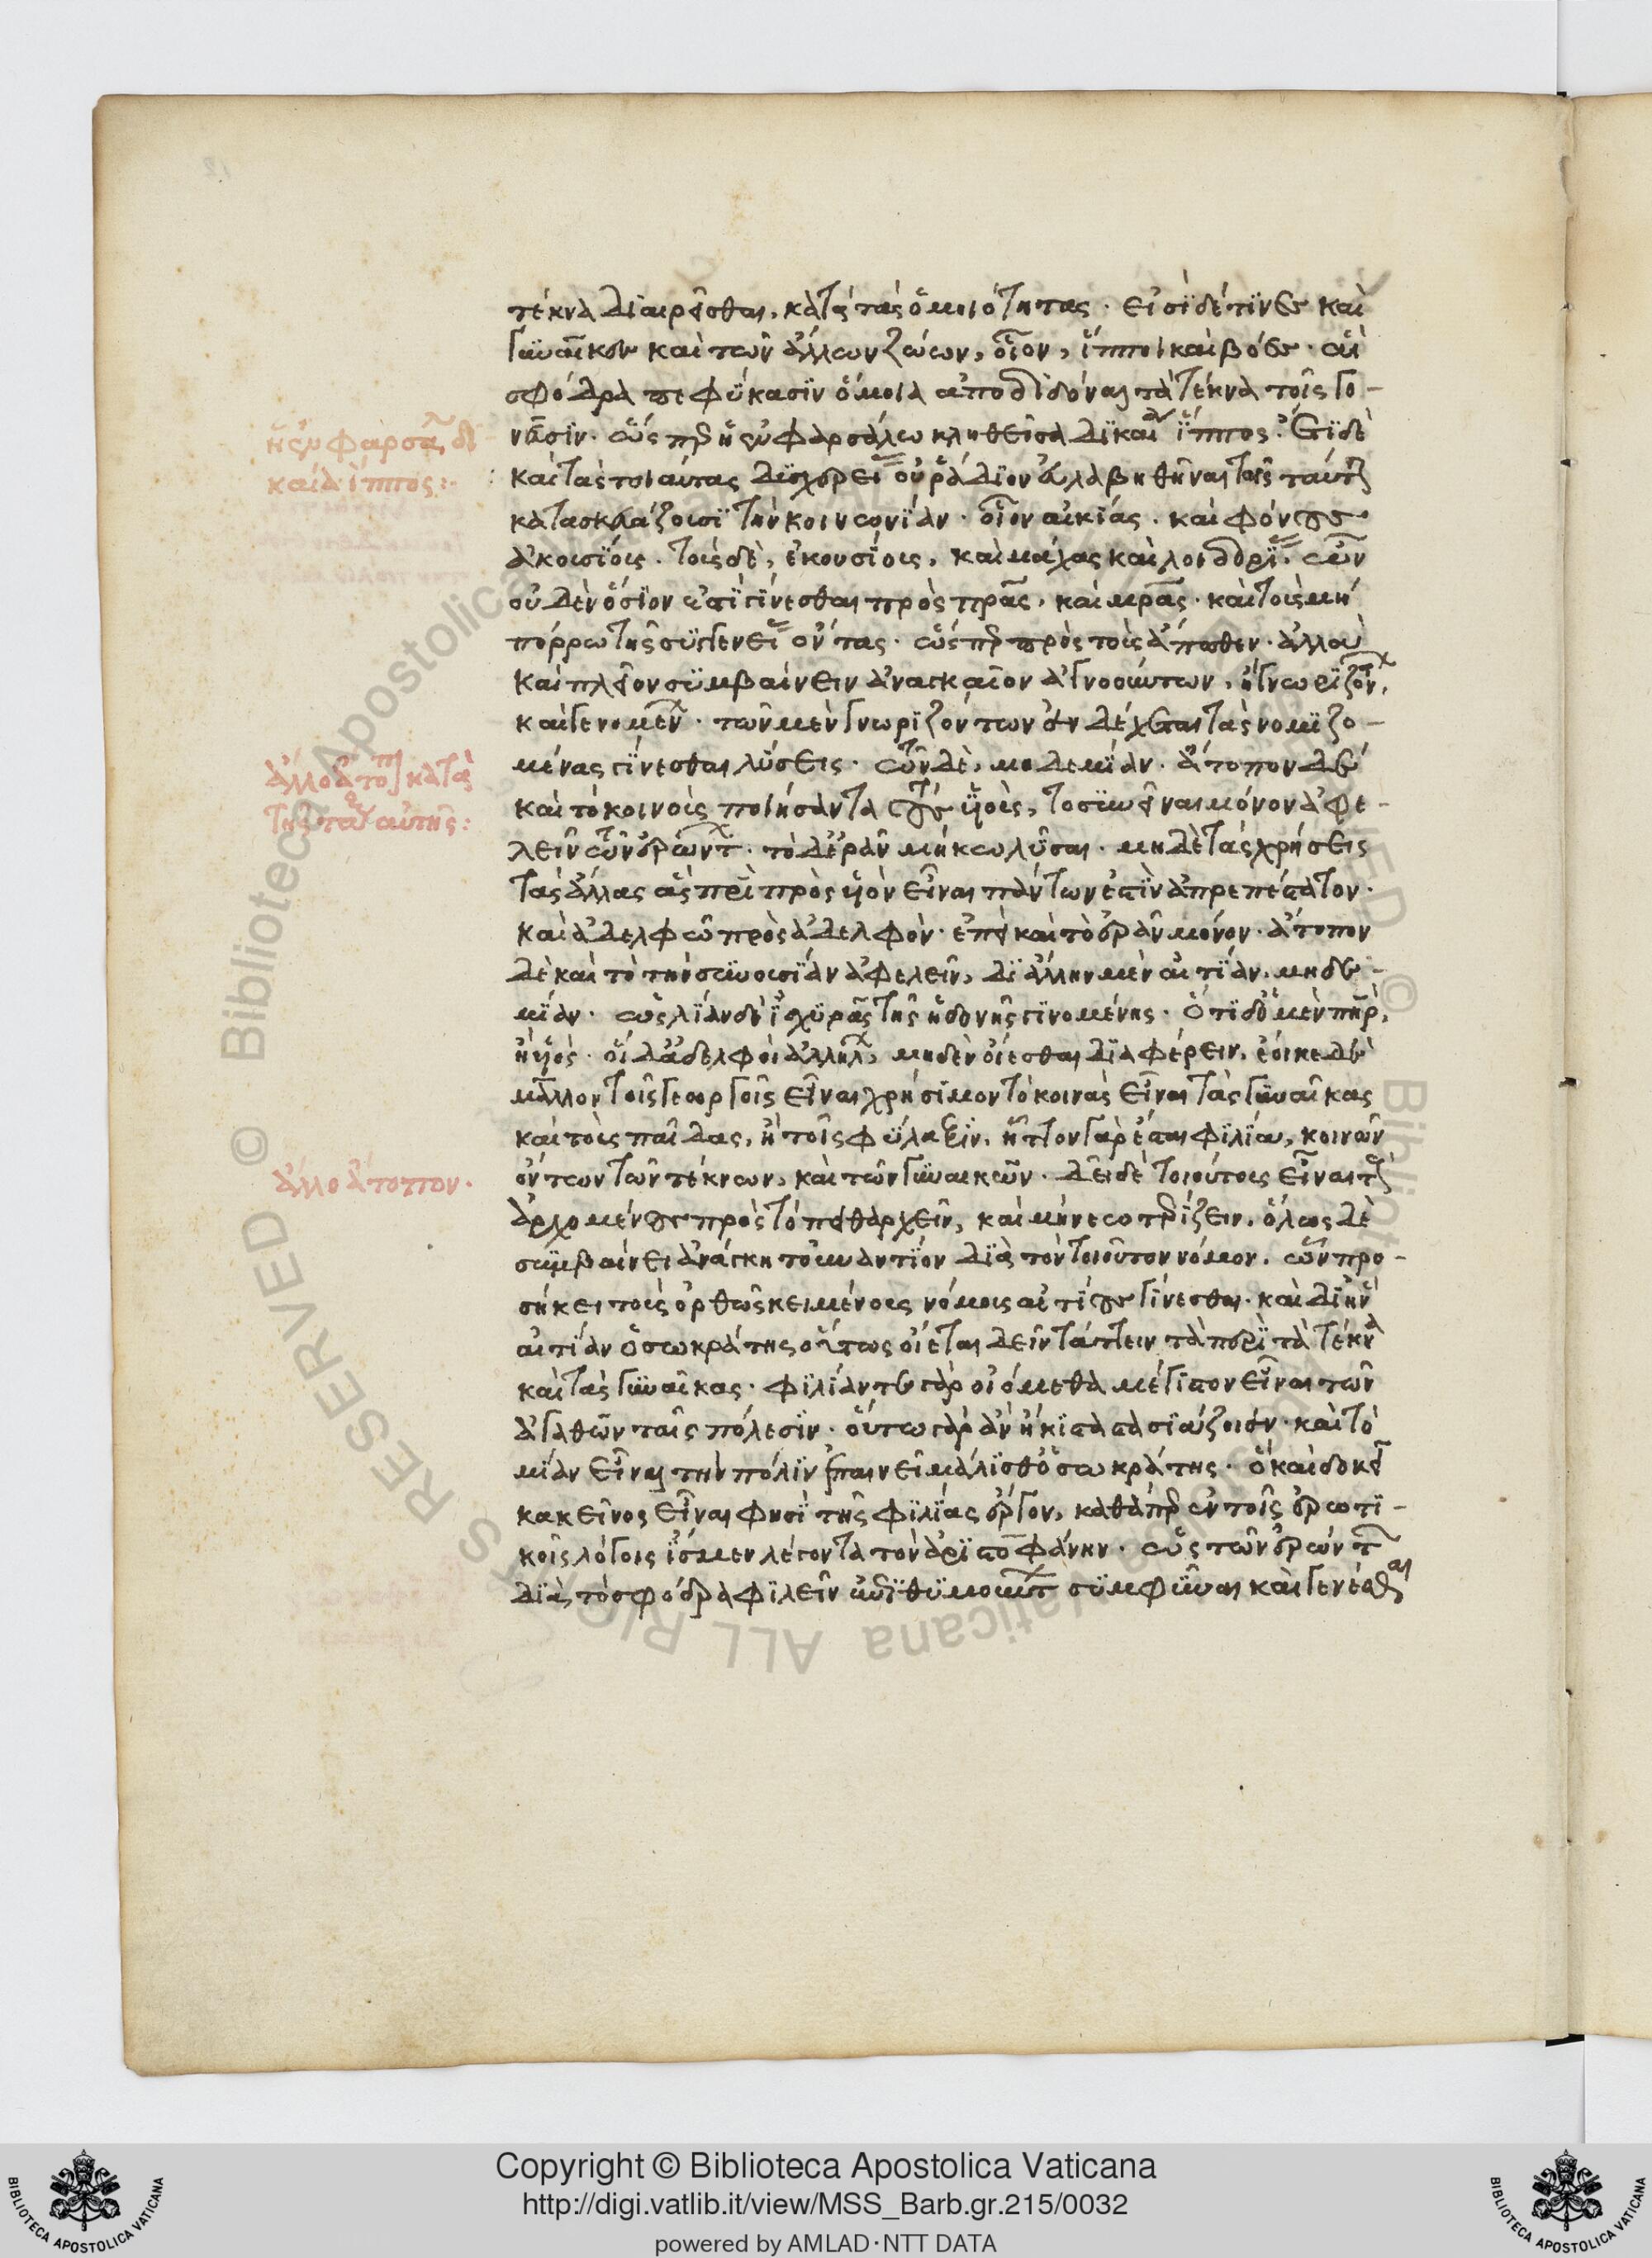 τέκνα διαιρεῖσθαι, κατὰ τὰς ὁμοιότητας. εἰσὶ δέ τινες καὶ
γυναῖκες καὶ τῶν ἄλλων ζώων, οἷον, ἵπποι καὶ βόες. αἳ
σφόδρα πεφύκασιν ὅμοια ἀποδιδόναι τὰ τέκνα τοῖς γο-
νεῦσιν. ὥσπερ ἡ ἐν φαρσάλω κληθεῖσα δικαία ἵππος. ἔτι δὲ
καὶ τὰς τοιαύτας δυσχερείας οὐ ῥάδιον εὐλαβηθῆναι τοῖς ταύτην
κατασκευάζουσι τὴν κοινωνίαν. οἷον αἰκίας. καὶ φόνους
ἀκουσίους. τοὺς δὲ, ἑκουσίους, καὶ μάχας καὶ λοιδορίας. ὧν
οὐδὲν ὅσιόν ἐστι γίνεσθαι πρὸς πρας, καὶ μρας. καὶ τοὺς μὴ
πόρρω τῆς συγγενείας ὄντας. ὥσπερ πρὸς τοὺς ἄποθεν. ἀλλὰ
καὶ πλεῖον συμβαίνειν ἀναγκαῖον ἀγνοούντων, ἢ γνωριζόντων,
καὶ γενομένων. τῶν μὲν γνωριζόντων ἐνδέχεται τὰς νομιζο-
μένας γίνεσθαι λύσεις. τῶν δὲ, μηδεμίαν. ἄτοπον δὲ
καὶ τὸ κοινοὺς ποιήσαντα τοὺς υἱοὺς, τὸ συνεῖναι μόνον ἀφε-
λεῖν τῶν ἐρώντων. τὸ δ' ἐρᾶν μὴ κωλῦσαι. μηδὲ τὰς χρήσεις
τὰς ἄλλας ἃς πρὶ πρὸς υἱὸν εἶναι πάντων ἐστὶν ἀπρεπέστατον.
καὶ ἀδελφῶ πρὸς ἀδελφόν. ἐπεὶ καὶ τὸ ἐρᾶν μόνον. ἄτοπον
δὲ καὶ τὸ τὴν συνουσίαν ἀφελεῖν, δι' ἄλλην μὲν αἰτίαν. μηδε-
μίαν. ὡς λίαν δὲ ἰσχυρᾶς τῆς ἡδονῆς γινομένης. ὅτι δ' ὁ μὲν πὴρ,
ἢ υἱὸς. οἱ δ' ἀδελφοὶ ἀλλήλων, μηδὲν οἴεσθαι διαφέρειν. ἔοικε δὲ
μᾶλλον τοῖς γεωργοῖς εἶναι χρήσιμον τὸ κοινὰς εἶναι τὰς γυναῖκας
καὶ τοὺς παῖδας, ἢ τοῖς φύλαξιν. ἧττον γὰρ ἔσται φιλία, κοινῶν
ὄντων τῶν τέκνων, καὶ τῶν γυναικῶν. δεῖ δὲ τοιούτους εἶναι τοὺς
ἀρχομένους πρὸς τὸ πειθαρχεῖν, καὶ μὴ νεωτερίζειν. ὅλως δὲ
συμβαίνει ἀνάγκη τοὐναντίον διὰ τὸν τοιοῦτον νόμον. ὧν προ-
σήκει τοὺς ὀρθῶς κειμένους νόμους αἰτίους γίνεσθαι. καὶ δι' ἣν
αἰτίαν ὁ σωκράτης οὕτως οἴεται δεῖν τάττειν τὰ περὶ τὰ τέκνα
καὶ τὰς γυναῖκας. φιλίαν τε γὰρ οἰόμεθα μέγιστον εἶναι τῶν
ἀγαθῶν ταῖς πόλεσιν. οὕτω γὰρ ἂν ἥκιστα στασιάζοιεν. καὶ τὸ
μίαν εἶναι τὴν πόλιν ἐπαινεῖ μάλισθ' ὁ σωκράτης. ὃ καὶ δοκεῖ
κακεῖνος εἶναι φησὶ τῆς φιλίας ἔργον, καθάπερ ἐν τοῖς ἐρωτι-
κοῖς λόγοις ἴσμεν λέγοντα τὸν ἀριστοφάνην. ὡς τῶν ἐρώντων
διὰ τὸ σφόδρα φιλεῖν ἐπιθυμούντων συμφῦναι καὶ γενέσθαι
ἡ ἐν φαρσάλ δι
καία ἵππος:
ἄλλο ἄτοπον κατὰ
τῆς αὐτῆς:
ἄλλο ἄτοπον.
Copyright © Biblioteca Apostolica Vaticana
http://digi.vatlib.it/view/MSS_Barb.gr.215/0032
powered by AMLAD·NTT DATA
BIBLIOTECA APOSTOLICA VATICANA
BIBLIOTECA APOSTOLICA VATICANA